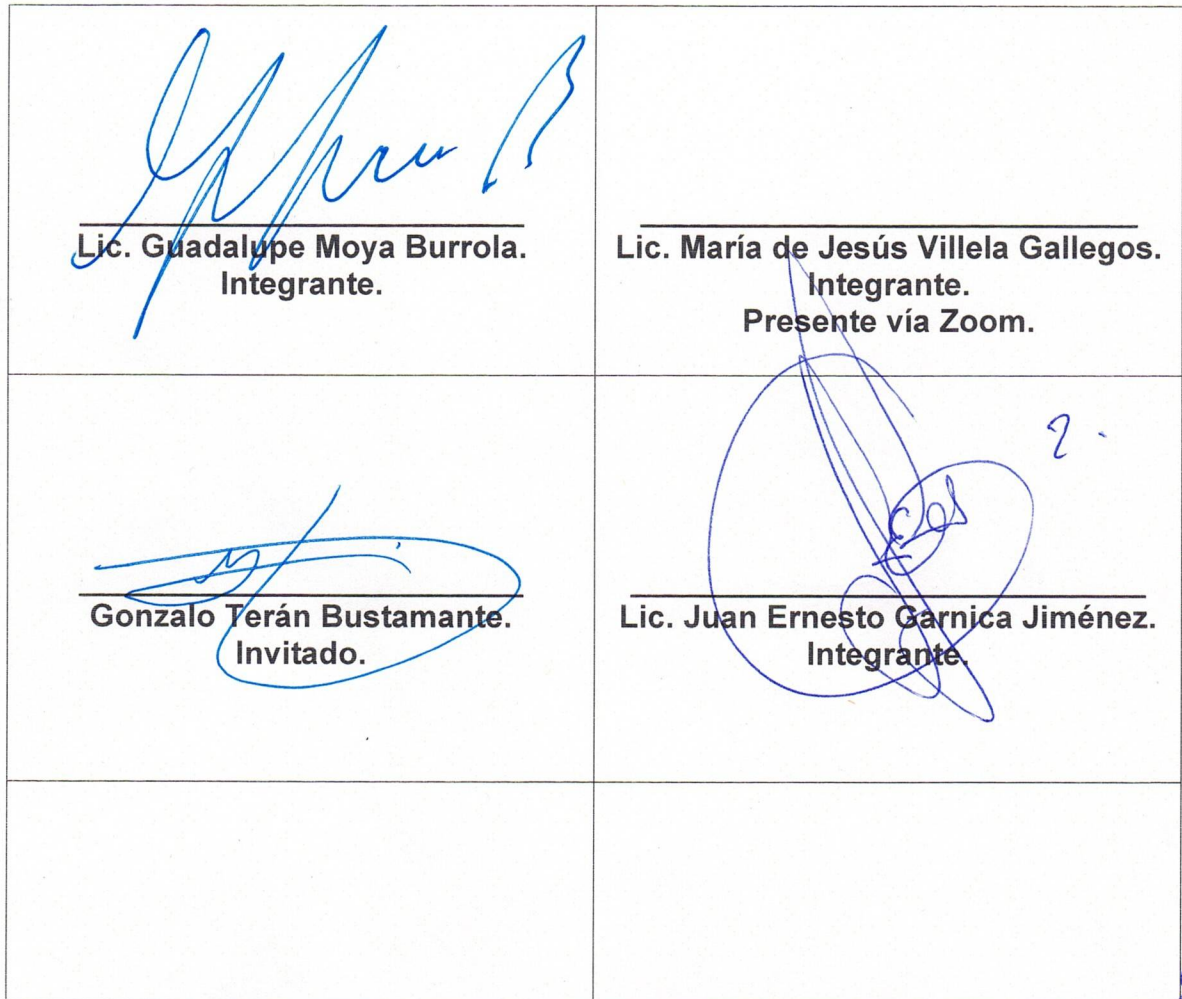 Lic. Guadalupe Moya Burrola.
Integrante.
Lic. María de Jesús Villela Gallegos.
Integrante.
Presente vía Zoom.
Gonzalo Terán Bustamante.
Invitado.
Lic. Juan Ernesto Garnica Jiménez.
Integrante.